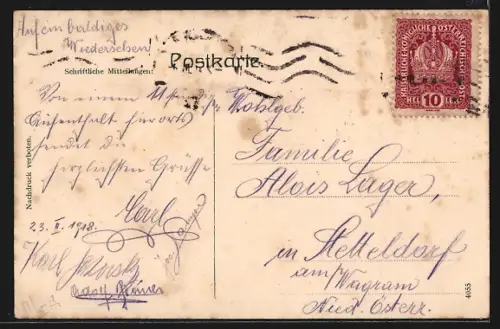 Auf ein baldiges
Wiedersehen
Postkarte.
Schriftliche Mitteilungen:
KAISERLICHE KÖNIGLICHE ÖSTERREICHISCHE POST
HELLER 10 HELLER
Von einem
Aufenthalt hierorts
sendet die
herzlichsten Grüsse
Carl
23. II. 1918.
Karl
Adolf
Nachdruck verboten.
Wohlgeb.
Familie
Alois Lager,
in Stetteldorf
am Wagram
Nied. Österr.
4055